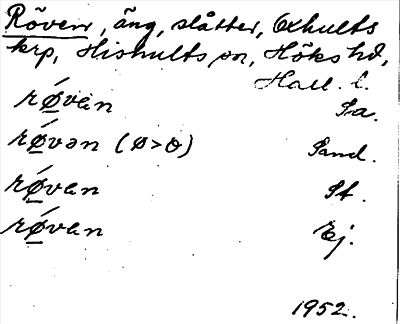 Röven, äng, slåtter, Oxhults
krp, Hishults sn, Höks hd,
Hall. l.
rǿvan Sa.
rǿvən (ø>ɵ) Sand.
rǿvan St.
rǿvan Ej.
1952.